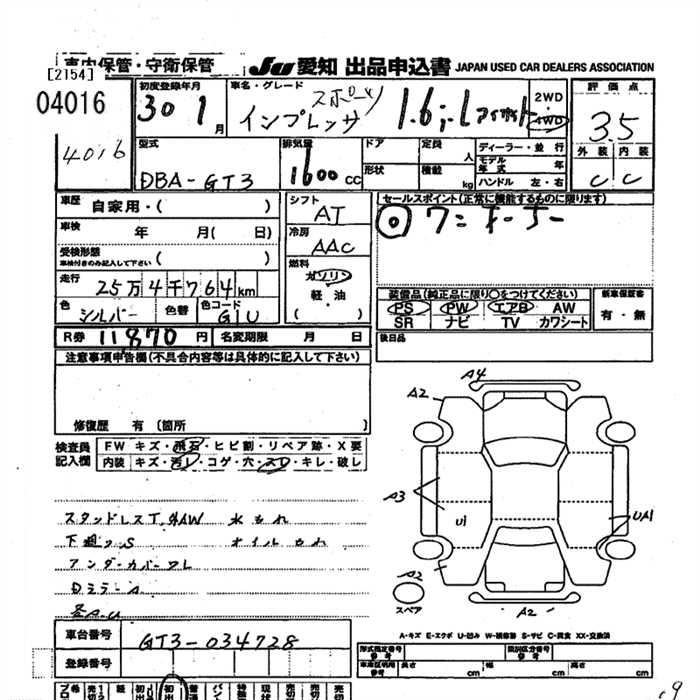 車内保管・守衛保管 JU 愛知 出品申込書 JAPAN USED CAR DEALERS ASSOCIATION
[2154]
04016
4016
初度登録年月 30 1月
車名・グレード
インプレッサ スポーツ 1.6i-L アイサイト
2WD
4WD
評価点
3.5
外装 内装
C C
型式
DBA-GT3
排気量
1600cc
ドア
形状
定員 人
積載 kg
ディーラー・並行
モデル年式 年
ハンドル 左・右
車歴 自家用・( )
車検 年 月( 日)
受検形態
車検付きのみ記入して下さい ( )
走行 25万4千764km
色 シルバー 色替 色コード G1U
シフト
AT
冷房
AAC
燃料
ガソリン
軽・油
( )
セールスポイント(正常に機能するものに限ります)
◎ ワンオーナー
装備品(純正品に限り○をつけてください)
PS PW エアB AW
SR ナビ TV カワシート
新車保証書
有・無
R券 11870円 名変期限 月 日
後日品
注意事項申告欄(不具合内容等は具体的に記入して下さい)
修復歴 有〔箇所 〕
検査員記入欄
FW キズ・飛石・ヒビ割・リペア跡・X要
内装 キズ・汚レ・コゲ・穴・スレ・キレ・破レ
スタッドレスT.4AW 水もれ
下廻りS オイルもれ
アンダーカバーワレ
DミラーA
各A.U
A4
A2
A3
U1
UA1
A2
スペア
A2
A-キズ E-エクボ U-凹み W-補修跡 S-サビ C-腐食 XX-交換済
車台番号 GT3-034728
登録番号
形式指定番号 参考
類別区分番号 参考
車車証明用 参考 長さ cm 幅 cm 高さ cm